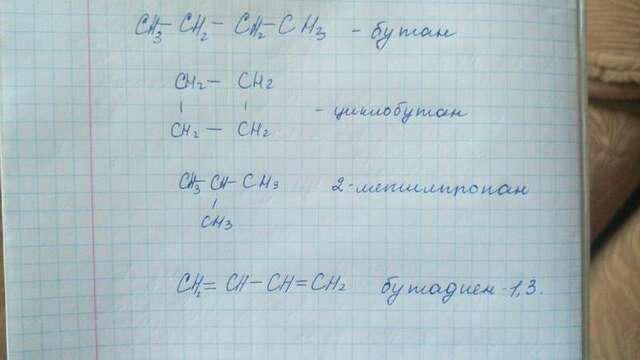 CH3 - CH2 - CH2 - CH3 - бутан
CH2 - CH2
| |
- циклобутан
CH2 - CH2
CH3 CH - CH3 2-метилпропан
|
CH3
CH2 = CH - CH = CH2 бутадиен-1,3.